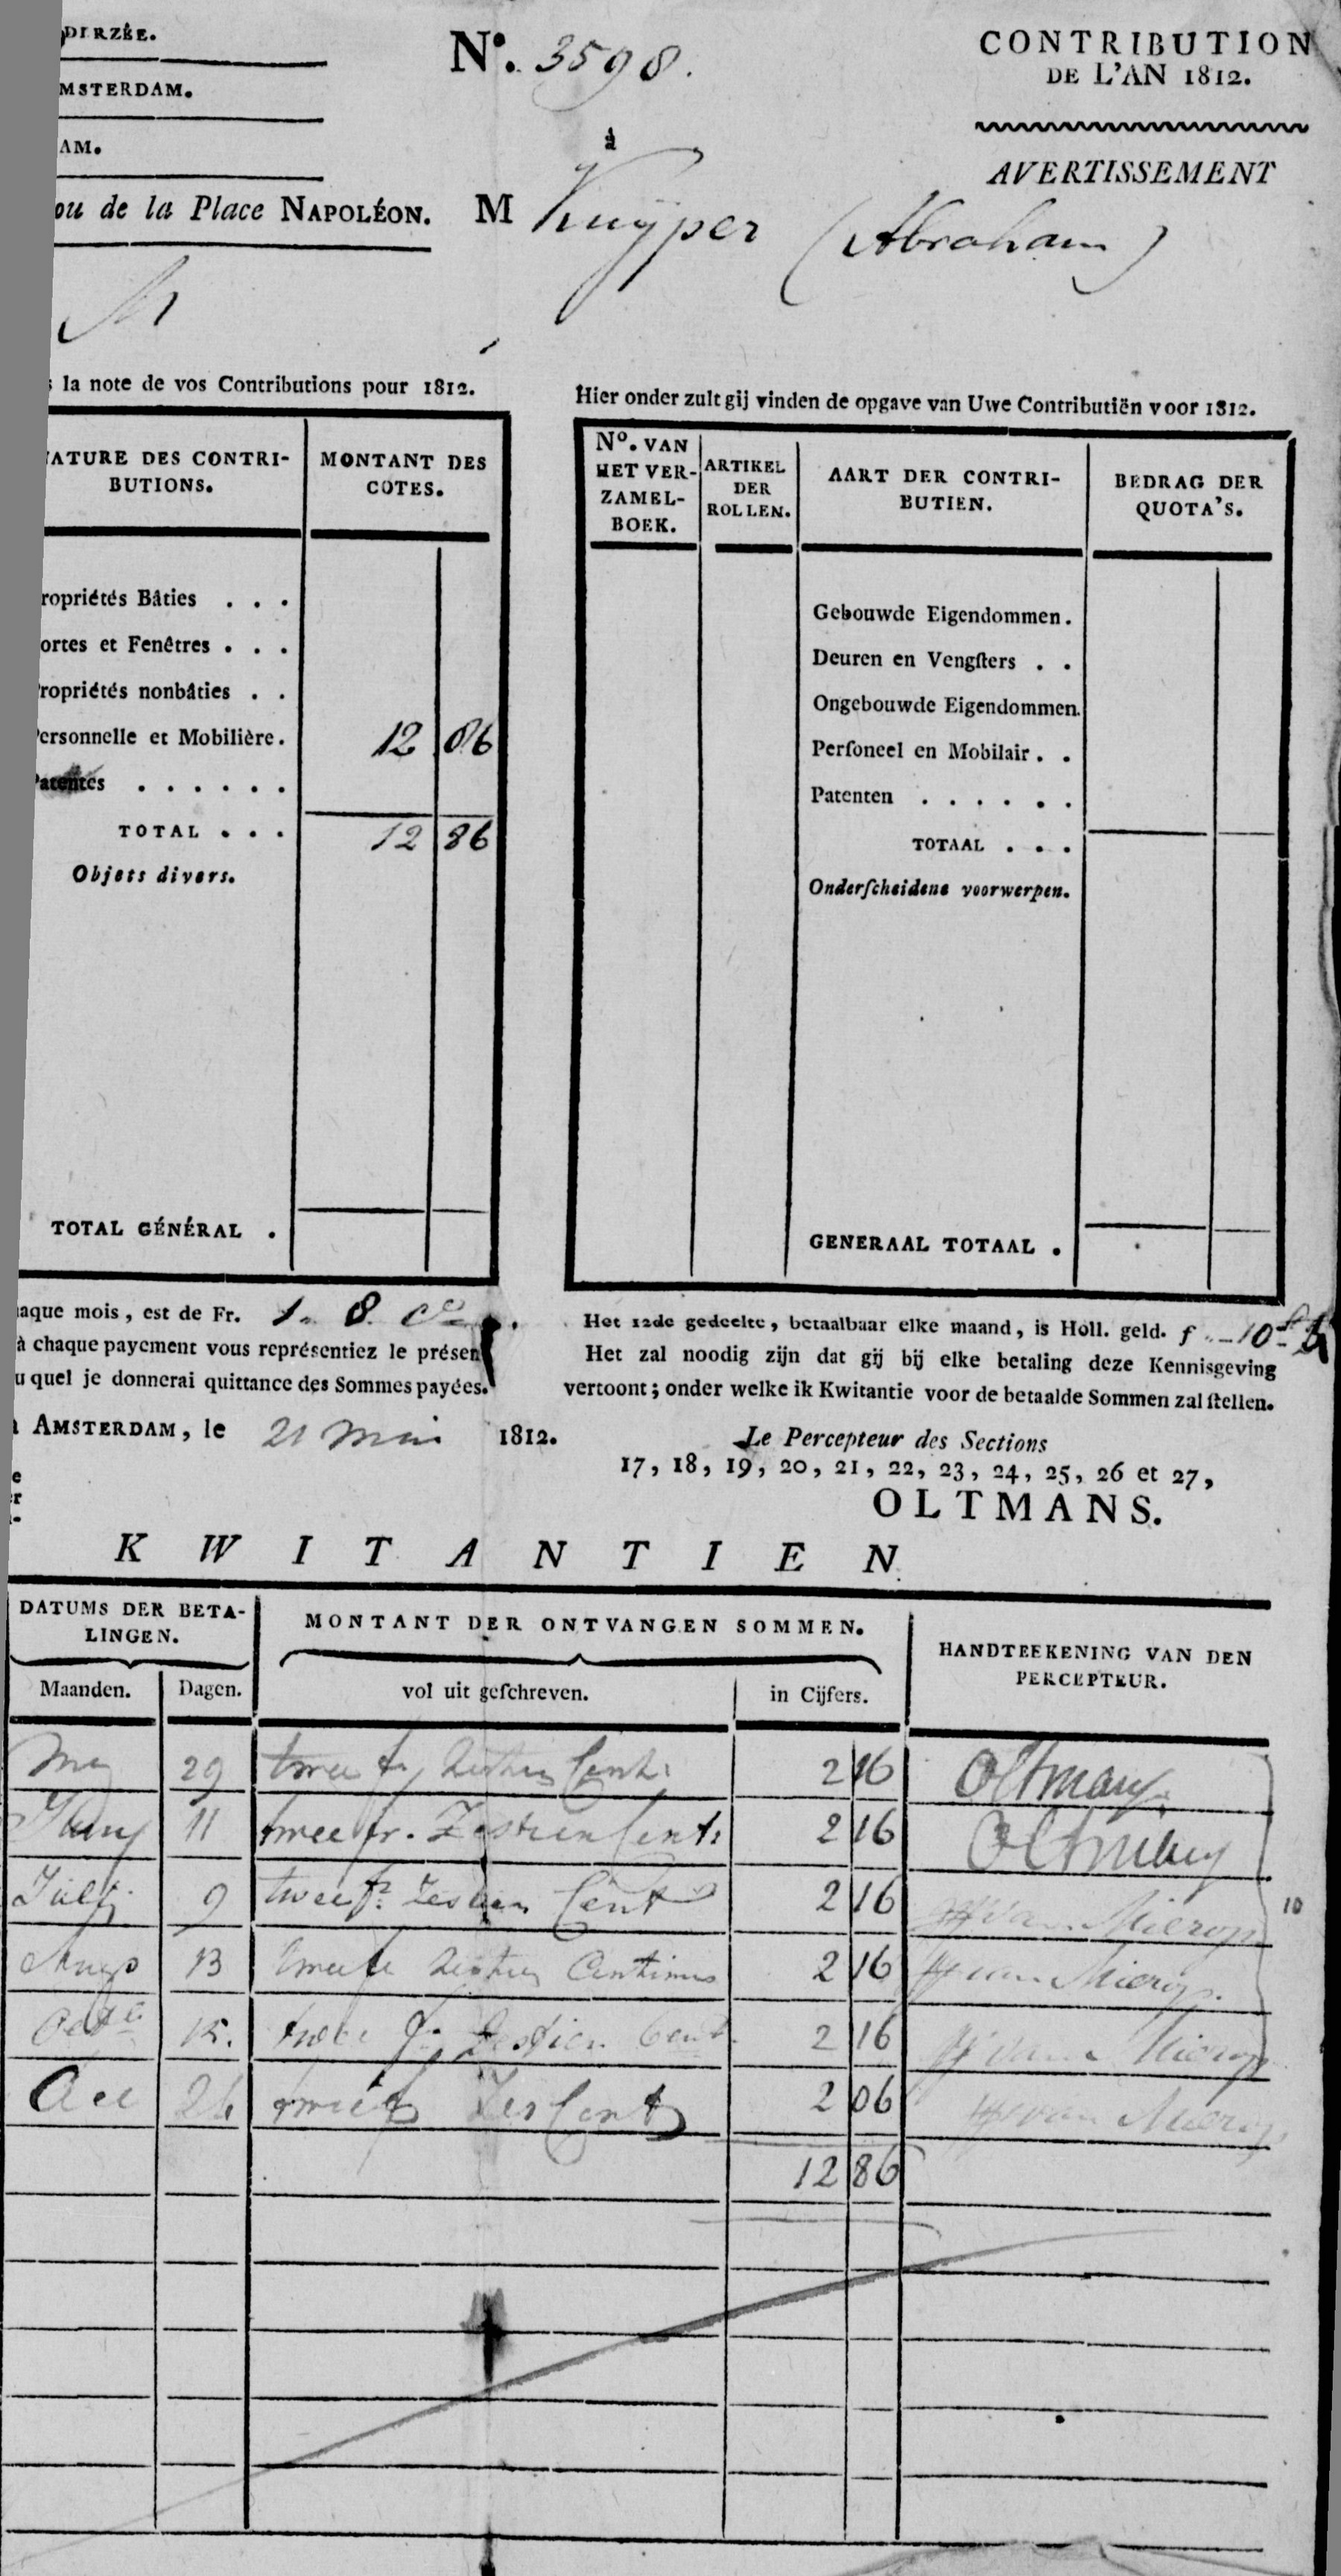 DERZÉE.
MSTERDAM.
AM.
ou de la Place NAPOLÉON.
N°. 3598.
CONTRIBUTION
DE L'AN 1812.
AVERTISSEMENT
à
M Kuÿper (Abraham)
M
la note de vos Contributions pour 1812.
NATURE DES CONTRI-
BUTIONS.
MONTANT DES
COTES.
ropriétés Bâties . . .
ortes et Fenêtres . . .
ropriétés nonbâties . .
ersonnelle et Mobilière. 12 86
Patentes . . . . . .
TOTAL . . . 12 86
Objets divers.
TOTAL GÉNÉRAL .
Hier onder zult gij vinden de opgave van Uwe Contributiën voor 1812.
N°. VAN
HET VER-
ZAMEL-
BOEK.
ARTIKEL
DER
ROLLEN.
AART DER CONTRI-
BUTIEN.
BEDRAG DER
QUOTA'S.
Gebouwde Eigendommen.
Deuren en Vengſters . .
Ongebouwde Eigendommen.
Perſoneel en Mobilair. .
Patenten . . . . . .
TOTAAL . . .
Onderſcheidene voorwerpen.
GENERAAL TOTAAL .
aque mois, est de Fr. 1. 8. Cs
à chaque payement vous représentiez le présen
u quel je donnerai quittance des Sommes payées.
AMSTERDAM, le 21 Mai 1812.
e
er
-
Het 12de gedeelte, betaalbaar elke maand, is Holl. geld. f -10-
Het zal noodig zijn dat gij bij elke betaling deze Kennisgeving
vertoont; onder welke ik Kwitantie voor de betaalde Sommen zal ſtellen.
Le Percepteur des Sections
17, 18, 19, 20, 21, 22, 23, 24, 25, 26 et 27,
OLTMANS.
KWITANTIEN
DATUMS DER BETA-
LINGEN.
MONTANT DER ONTVANGEN SOMMEN.
HANDTEEKENING VAN DEN
PERCEPTEUR.
Maanden. Dagen. vol uit geſchreven. in Cijfers.
Mey 29 twee fr Zestien Cent. 2 16 Oltmans
Juny 11 twee fr. Zestien Cent. 2 16 Oltmans
Julij 9 twee fr. Zestien Cent 2 16 van Mierop
10
Augs 13 twee fr Zestien Centimes 2 16 van Mierop.
15. twee fr Zestien Cent 2 16 van Mierop
twee fr Zes Cent 2 06 van Mierop
12 86